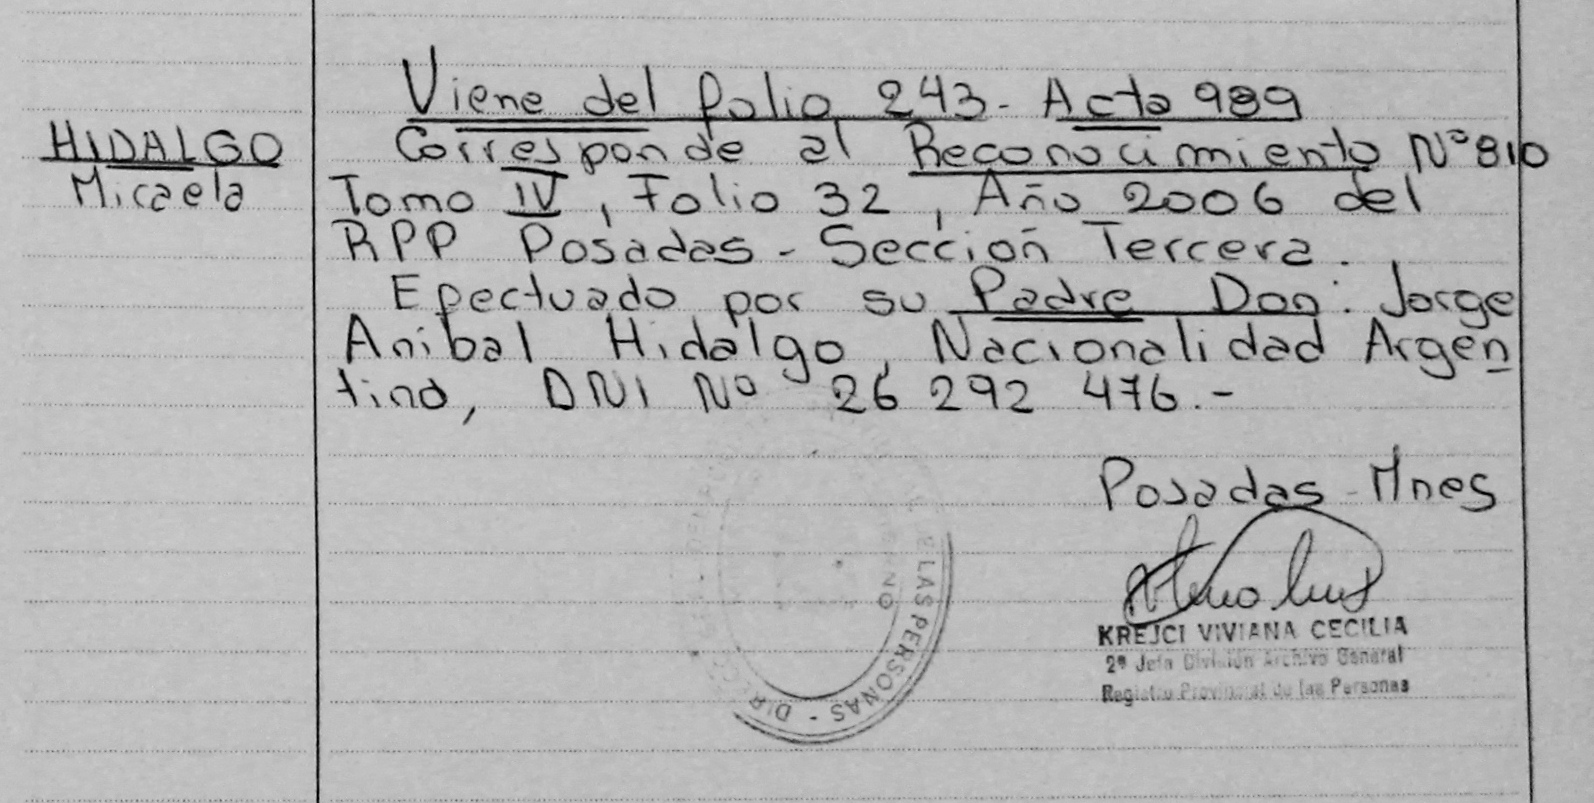 Viene del folio 243 - Acta 989
HIDALGO
Micaela
Corresponde al Reconocimiento Nº 810
Tomo IV, Folio 32, Año 2006 del
RPP Posadas - Sección Tercera.
Efectuado por su Padre Don: Jorge
Anibal Hidalgo, Nacionalidad Argen
tino, DNI Nº 26 292 476.-
Posadas - Mnes
KREJCI VIVIANA CECILIA
2ª Jefa División Archivo General
Registro Provincial de las Personas
E LAS PERSONAS - DIR